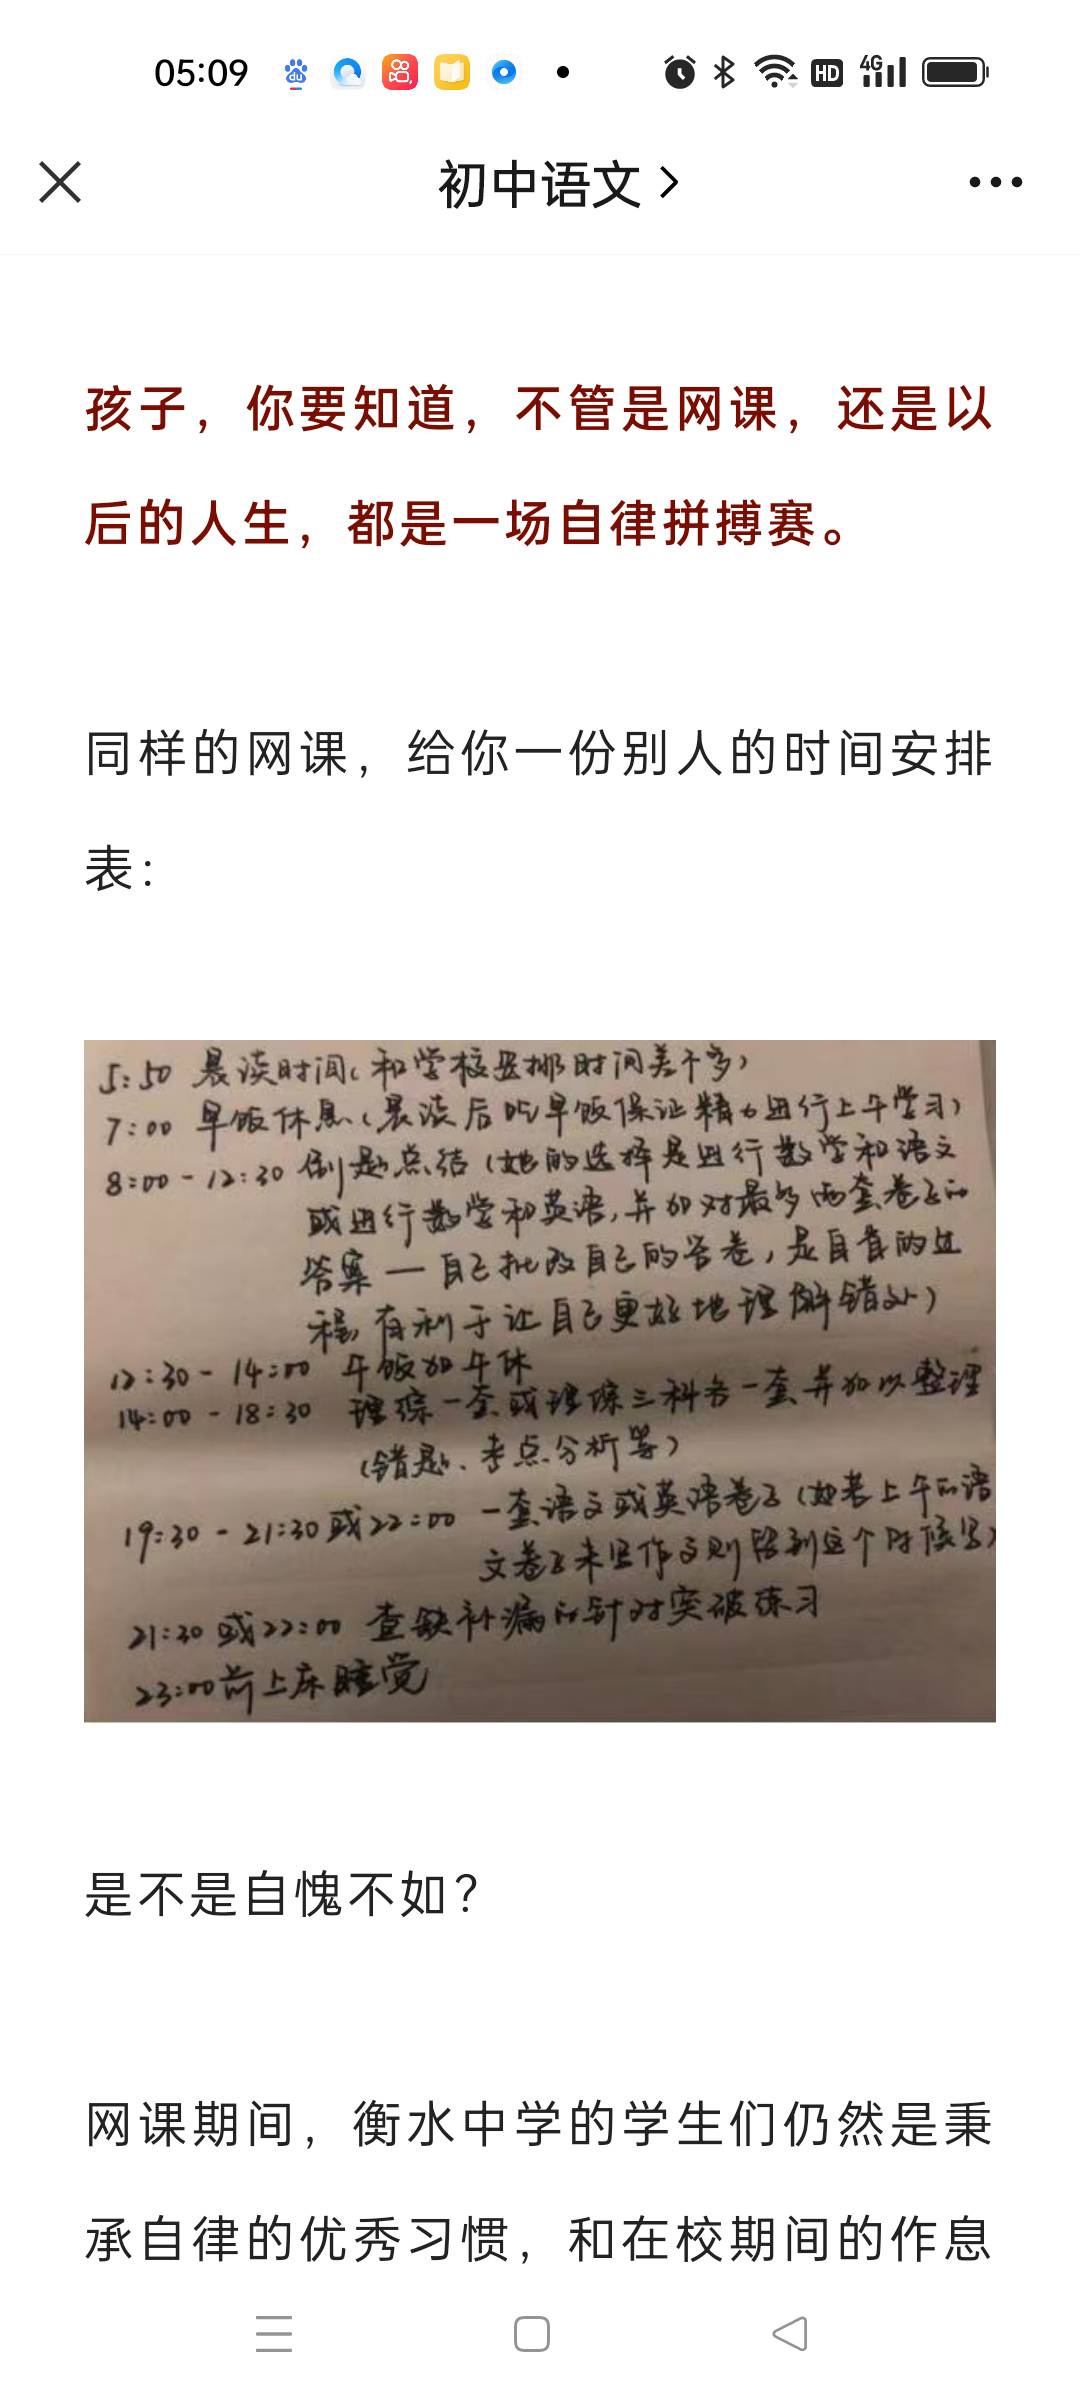 05:09
HD 4G
初中语文
孩子，你要知道，不管是网课，还是以
后的人生，都是一场自律拼搏赛。
同样的网课，给你一份别人的时间安排
表：
5:50 晨读时间（和学校安排时间差不多）
7:00 早饭休息（晨读后吃早饭保证精力进行上午学习）
8:00-12:30 刷题总结（她的选择是进行数学和语文
或进行数学和英语,并加对最多两套卷子的
答案—自己批改自己的答卷,是自省的过
程,有利于让自己更好地理解错处）
12:30-14:00 午饭加午休
14:00-18:30 理综一套或理综三科各一套并加以整理
（错题、考点分析等）
19:30-21:30或22:00 一套语文或英语卷子（如若上午的语
文卷子未写作文则留到这个时候写）
21:30或22:00 查缺补漏的针对突破练习
23:00前上床睡觉
是不是自愧不如？
网课期间，衡水中学的学生们仍然是秉
承自律的优秀习惯，和在校期间的作息